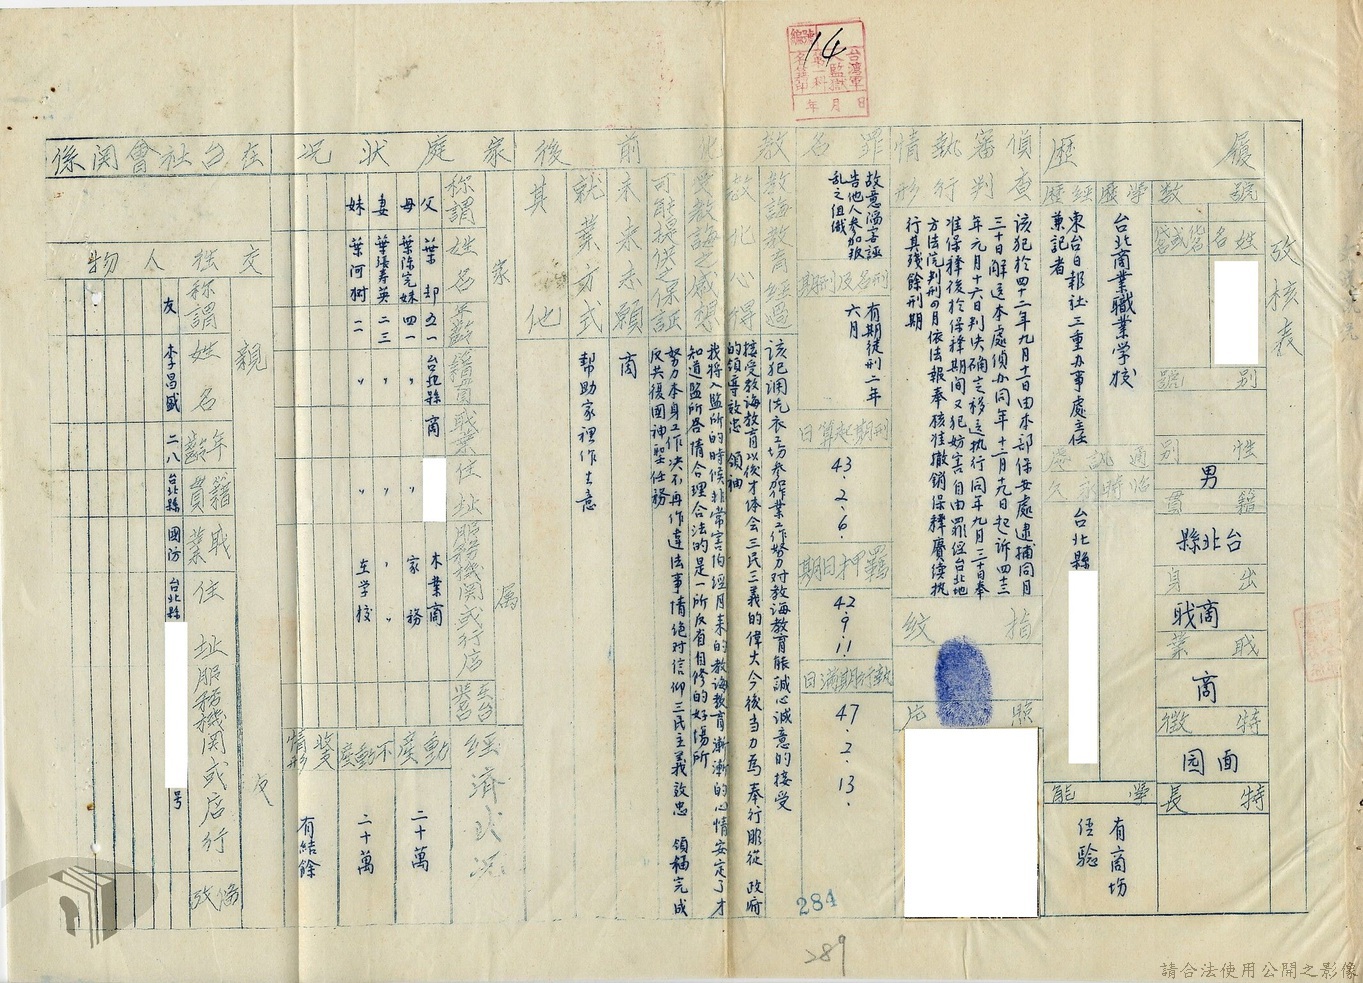 14
台灣軍人監獄
第一科
年月日
攷核表
履歷
號數
姓名或代號
別號
性別
男
籍貫
台北縣
出身
商職
職業
商
特徵
面园
特長
學歷經歷
台北商業職業學校
東台日報社三重办事處主任
兼記者
通訊處
臨時永久
台北縣
學能
有商場
經驗
偵查審判執行情形
該犯於四十二年九月十一日由本部保安處逮捕同月
三十日解送本處偵办同年十二月十九日起诉四十三
年元月十六日判决确定移送执行同年九月三十日奉
准保釋後於保釋期间又犯妨害自由罪经台北地
方法院判刑四月依法報奉核准撤銷保釋賡续执
行其殘餘刑期
指紋
照片
罪名
故意誣告他人参加叛
乱之组织
刑名及刑期
有期徒刑二年
六月
刑期起算日
43.2.6.
羈押日期
42.9.11.
执行期满日
47.2.13.
教化前後
教誨教育經過
該犯調洗衣工場参加作業工作努力对教诲教育能誠心诚意的接受
教化心得
接受教诲教育以後才体会三民主義的偉大今後当力為奉行服從 政府
的领导效忠 领袖
受教誨之感想
我將入監所的時候非常害怕經月来的教诲教育漸漸的心情安定了才
知道监所各情合理合法的是一所反省自修的好場所
可能提供之保証
努力本身工作决不再作違法事情绝对信仰三民主義效忠 領袖完成
反共復國神聖任務
未來志願
商
就業方式
帮助家裡作生意
其他
家庭狀況
家屬
称謂 姓名 年齡 籍貫 職業 住址 服務機関或行店
父 葉却 五一 台北縣 商 木業商
母 葉陈完妹 四一 〃 〃 家務
妻 葉張寿英 二三 〃
妹 葉河树 二 〃 〃 〃 在学校
經濟状况
動產
二十萬
不動產
二十萬
收支情形
有結餘
在台社會関係
親友
交往人物
称謂 姓名 年齡 籍貫 职業 住址 服務機関或店行 備攷
友 李昌盛 二八 台北縣 國防 台北縣 号
284
289
請合法使用公開之影像